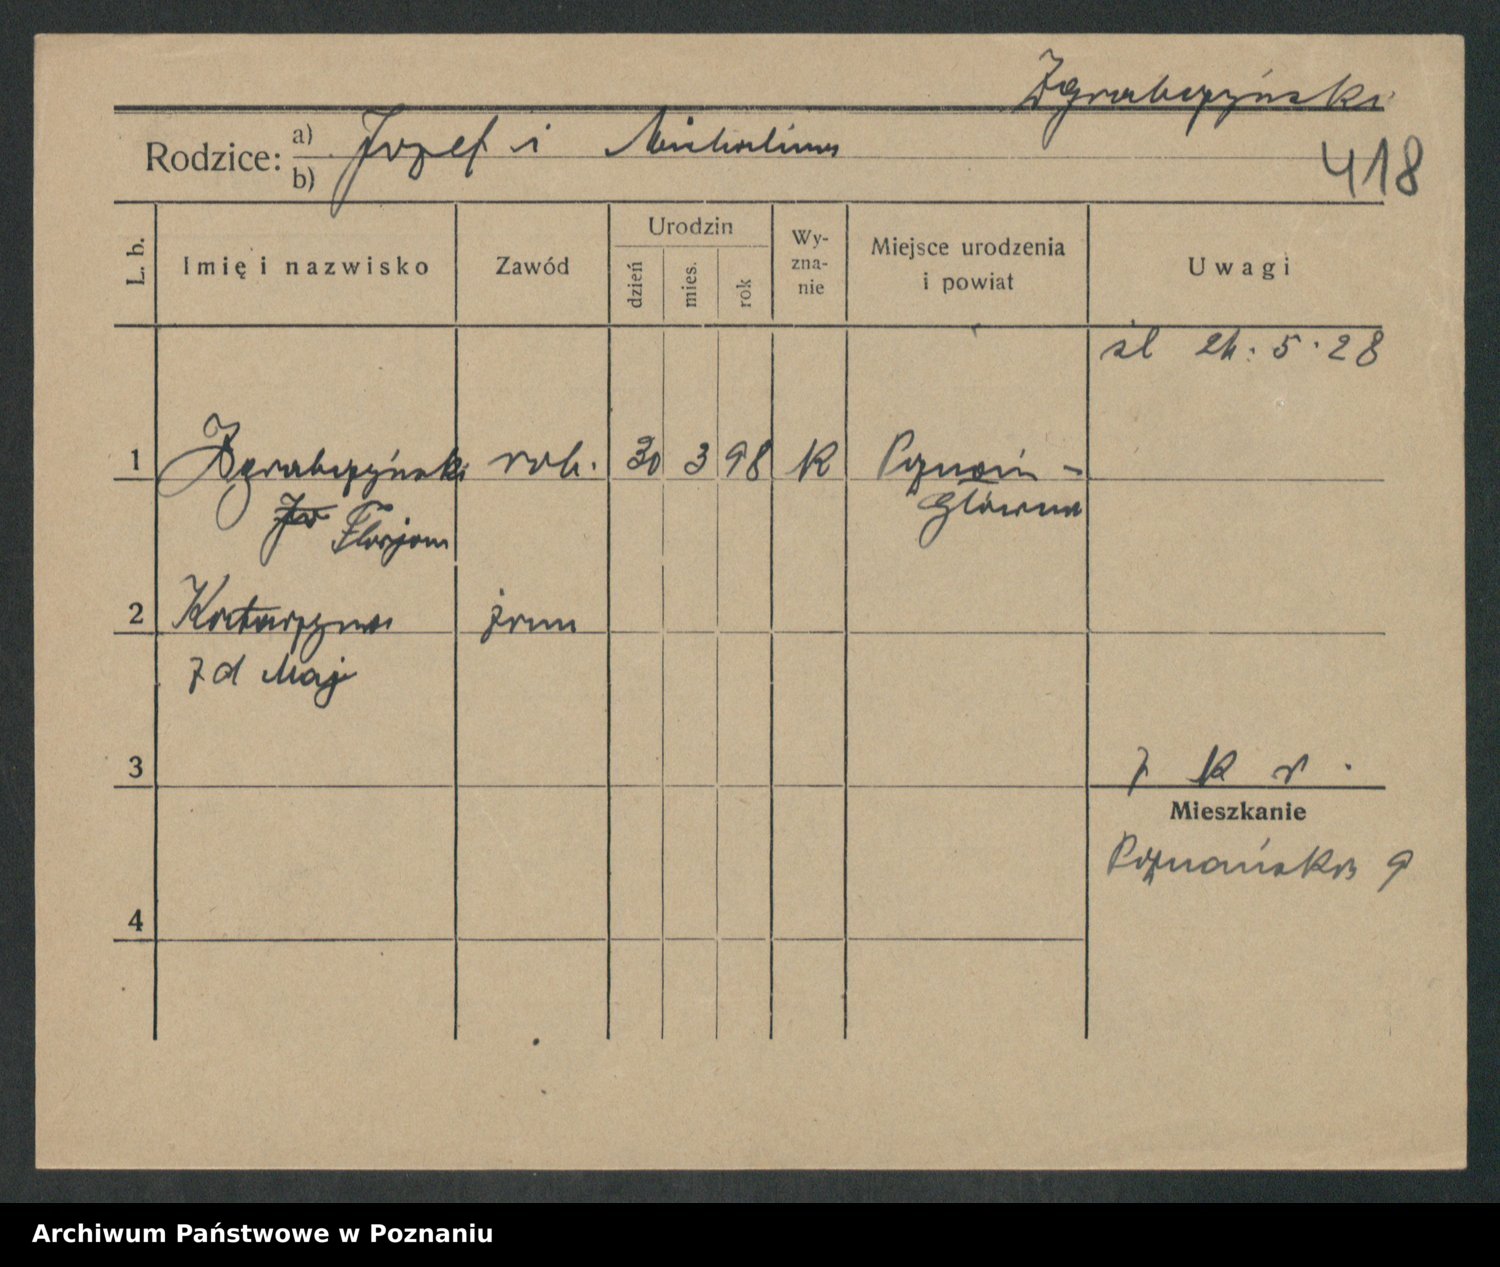 Zgrabczyński
418
Rodzice: a) Józef i Michalina
b)
L. b.
Imię i nazwisko
Zawód
Urodzin
dzień
mies.
rok
Wy-
zna-
nie
Miejsce urodzenia
i powiat
Uwagi
śl 24.5.28
1 Zgrabczyński rob. 30 3 98 K Poznań -
Jó Florjan Główna
2 Katarzyna żona
z d Maj
3
z K r.
Mieszkanie
Poznańska 9
4
Archiwum Państwowe w Poznaniu